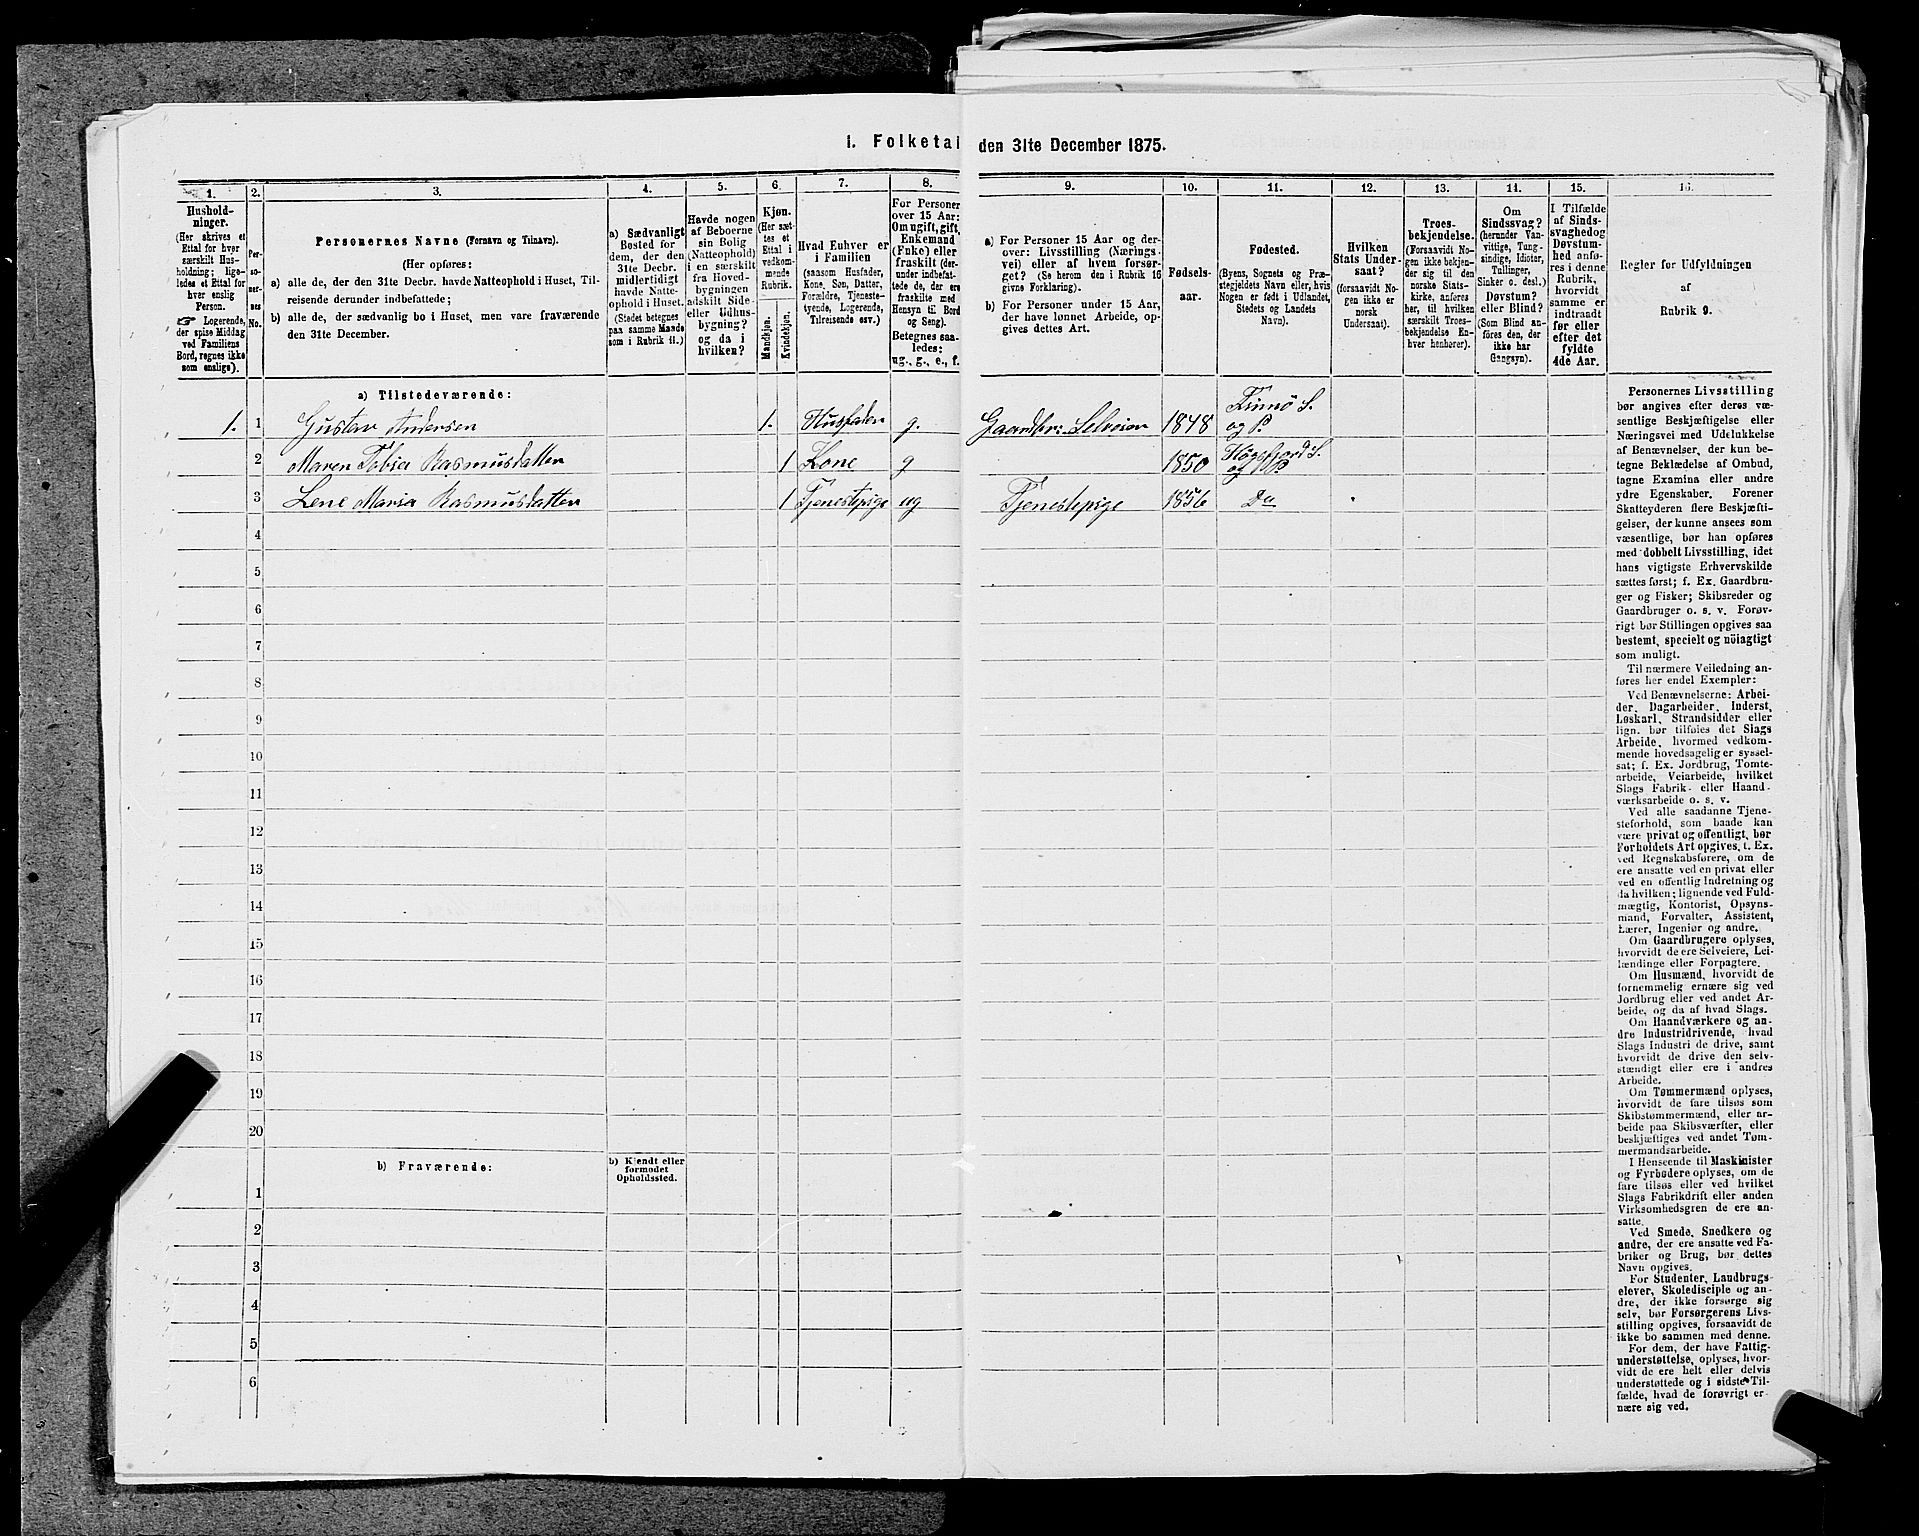 1. Folketal den 31te December 1875.
1.
2.
3.
4.
5.
6.
7.
8.
9.
10.
11.
12.
13.
14.
15.
16.
Hushold-
ninger.
(Her skrives et
Ettal for hver
særskilt Hus-
holdning; lige-
ledes et Ettal for
hver enslig
Person.
☞ Logerende,
der spise Middag
ved Familiens
Bord, regnes ikke
som enslige).
Per-
so-
ner-
nes
No.
Personernes Navne (Fornavn og Tilnavn).
(Her opføres:
a) alle de, der den 31te Decbr. havde Natteophold i Huset, Til-
reisende derunder indbefattede;
b) alle de, der sædvanlig bo i Huset, men vare fraværende
den 31te December.
a) Sædvanligt
Bosted for
dem, der den
31te Decbr.
midlertidigt
havde Natte-
ophold i Huset.
(Stedet betegnes
paa samme Maade
som i Rubrik 11.)
Havde nogen
af Beboerne
sin Bolig
(Natteophold)
i en særskilt
fra Hoved-
bygningen
adskilt Side-
eller Udhus-
bygning?
og da i
hvilken?
Kjøn.
(Her sæt-
tes et
Ettal i
vedkom-
mende
Rubrik.
Mandkjøn.
Kvindekjøn.
Hvad Enhver er
i Familien
(saasom Husfader,
Kone, Søn, Datter,
Forældre, Tjeneste-
tyende, Logerende,
Tilreisende osv.)
For Personer
over 15 Aar:
Om ugift, gift,
Enkemand
(Enke) eller
fraskilt (der-
under indbefat-
tede de, der ere
fraskilte med
Hensyn til Bord
og Seng).
Betegnes saa-
ledes:
ug., g., e., f.
a) For Personer 15 Aar og der-
over: Livsstilling (Nærings-
vei) eller af hvem forsør-
get? (Se herom den i Rubrik 16
givne Forklaring).
b) For Personer under 15 Aar,
der have lønnet Arbeide, op-
gives dettes Art.
Fødsels-
aar.
Fødested.
(Byens, Sognets og Præ-
stegjeldets Navn eller, hvis
Nogen er født i Udlandet,
Stedets og Landets
Navn).
Hvilken
Stats Under-
saat?
(forsaavidt No-
gen ikke er
norsk
Undersaat).
Troes-
bekjendelse.
(Forsaavidt No-
gen ikke bekjen-
der sig til den
norske Stats-
kirke, anføres
her, til hvilken
særskilt Troes-
bekjendelse En-
hver henhører).
Om
Sindssvag?
(herunder Van-
vittige, Tung-
sindige, Idioter,
Tullinger,
Sinker o. desl.)
Døvstum?
eller Blind?
(Som Blind an-
føres den, der
ikke har
Gangsyn).
I Tilfælde
af Sinds-
svaghed og
Døvstum-
hed anfø-
res i denne
Rubrik,
hvorvidt
samme er
indtraadt
før eller
efter det
fyldte
4de Aar.
Regler for Udfyldningen
af
Rubrik 9.
a) Tilstedeværende:
1. 1 Gustav Andersen 1. Husfader g. Gaardbr: Selveier 1848 Finnö S. og P.
2 Maren Tobia Rasmusdatten 1 Kone g 1850 Högsfjord S. og P
3 Lene Maria Rasmusdatten 1 Tjenestepige ug Tjenestepige 1856 Do
4
5
6
7
8
9
10
11
12
13
14
15
16
17
18
19
20
b) Fraværende:
b) Kjendt eller
formodet
Opholdssted.
1
2
3
4
5
6
Personernes Livsstilling
bør angives efter deres væ-
sentlige Beskjæftigelse eller
Næringsvei med Udelukkelse
af Benævnelser, der kun be-
tegne Beklædelse af Ombud,
tagne Examina eller andre
ydre Egenskaber. Forener
Skatteyderen flere Beskjæfti-
gelser, der kunne ansees som
væsentlige, bør han opføres
med dobbelt Livsstilling, idet
hans vigtigste Erhvervskilde
sættes først; f. Ex. Gaardbru-
ger og Fisker; Skibsreder og
Gaardbruger o. s. v. Forøv-
rigt bør Stillingen opgives saa
bestemt, specielt og nöiagtigt
som muligt.
Til nærmere Veiledning an-
føres her endel Exempler:
Ved Benævnelserne: Arbei-
der, Dagarbeider, Inderst,
Løskarl, Strandsidder eller
lign. bør tilføies det Slags
Arbeide, hvormed vedkom-
mende hovedsagelig er syssel-
sat; f. Ex. Jordbrug, Tomte-
arbeide, Veiarbeide, hvilket
Slags Fabrik- eller Haand-
værksarbeide o. s. v.
Ved alle saadanne Tjene-
steforhold, som baade kan
være privat og offentligt, bør
Forholdets Art opgives, f. Ex.
ved Regnskabsførere, om de
ere ansatte ved en privat eller
ved en offentlig Indretning og
da hvilken; lignende ved Fuld-
mægtig, Kontorist, Opsyns-
mand, Forvalter, Assistent,
Lærer, Ingeniør og andre.
Om Gaardbrugere oplyses,
hvorvidt de ere Selveiere, Lei-
lændinge eller Forpagtere.
Om Husmænd, hvorvidt de
fornemmelig ernære sig ved
Jordbrug eller ved andet Ar-
beide, og da af hvad Slags.
Om Haandværkere og an-
dre Industridrivende, hvad
Slags Industri de drive, samt
hvorvidt de drive den selv-
stændigt eller ere i andres
Arbeide.
Om Tømmermænd oplyses,
hvorvidt de fare tilsøs som
Skibstømmermænd, eller ar-
beide paa Skibsværfter, eller
beskjæftiges ved andet Tøm-
mermandsarbeide.
I Henseende til Maskinister
og Fyrbødere oplyses, om de
fare tilsøs eller ved hvilket
Slags Fabrikdrift eller anden
Virksomhedsgren de ere an-
satte.
Ved Smede, Snedkere og
andre, der ere ansatte ved Fa-
briker og Brug, bør dettes
Navn opgives.
For Studenter, Landbrugs-
elever, Skoledisciple og an-
dre, der ikke forsørge sig
selv, bør Forsørgerens Livs-
stilling opgives, forsaavidt de
ikke bo sammen med denne.
For dem, der have Fattig-
understøttelse, oplyses, hvor-
vidt de ere helt eller delvis
understøttede og i sidste Til-
fælde, hvad de forøvrigt er-
nære sig ved.